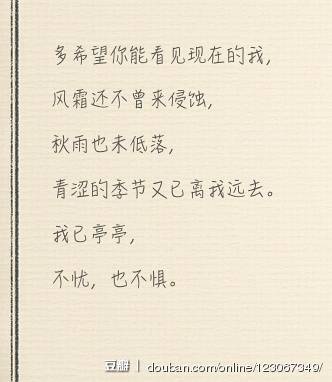 多希望你能看见现在的我，
风霜还不曾来侵蚀，
秋雨也未低落，
青涩的季节又已离我远去。
我已亭亭，
不忧，也不惧。
豆瓣 | douban.com/online/123067349/